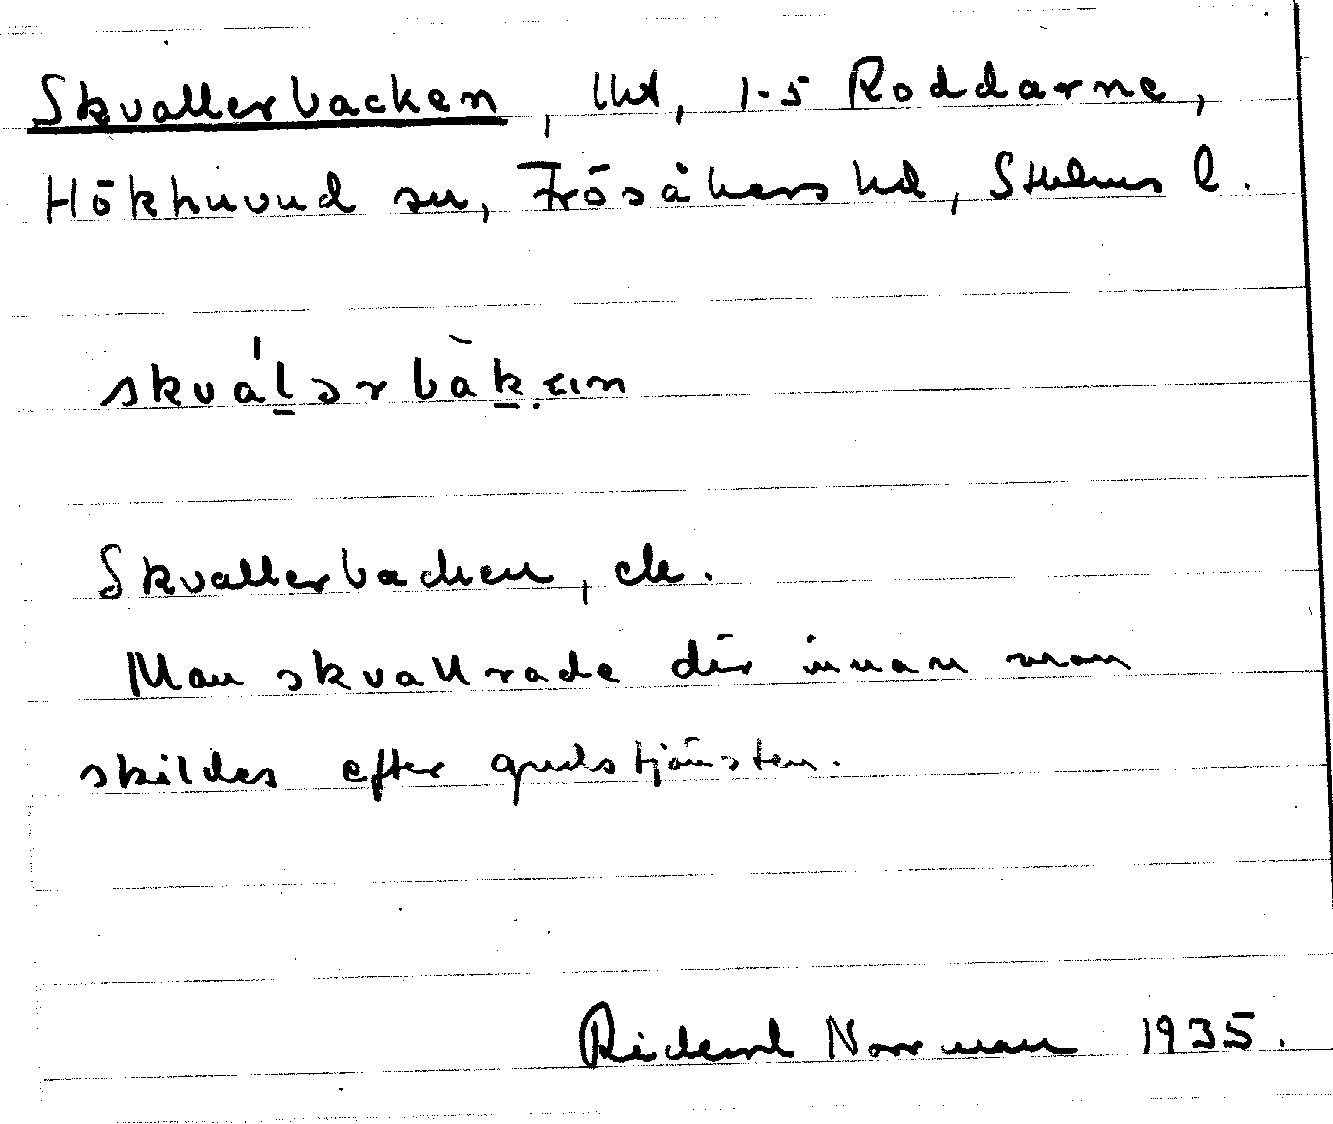 Skvallerbacken, lht, 1-5 Roddarne,
Hökhuvud sn, Frösåkers hd, Sthlms l.
skvál̠ərbàk̠.æn
Skvallerbacken, ck.
Man skvallrade där innan man
skildes efter gudstjänsten.
Norrman 1935.